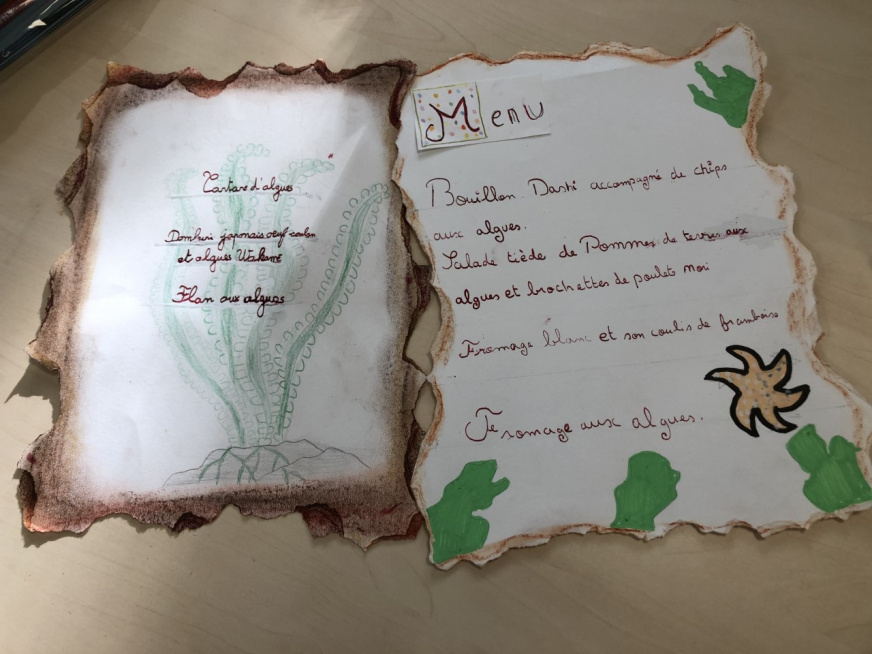 Tartare d'algues
Domburi japonais oeuf coulon
et algues Wakamé
Flan aux algues
Menu
Bouillon Dashi accompagné de chips
aux algues.
Salade tiède de Pommes de terres aux
algues et brochettes de poulets nori
Fromage blanc et son coulis de framboise
Fromage aux algues.